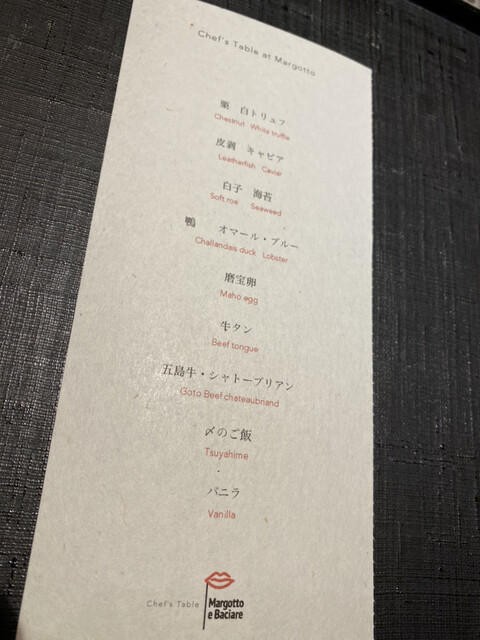 Chef's Table at Margotto
栗 白トリュフ
Chestnut White truffle
皮剥 キャビア
Leatherfish Caviar
白子 海苔
Soft roe Seaweed
鴨 オマール・ブルー
Challandais duck Lobster
磨宝卵
Maho egg
牛タン
Beef tongue
五島牛・シャトーブリアン
Goto Beef chateaubriand
〆のご飯
Tsuyahime
バニラ
Vanilla
Chef's Table
Margotto
e Baciare